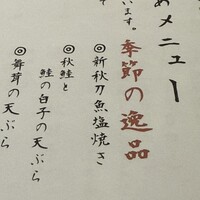 めメニュー
います。
季節の逸品
◎新秋刀魚塩焼き
◎秋鮭と
鮭の白子の天ぷら
◎舞茸の天ぷら